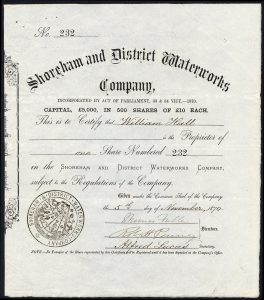 No. 232
Shoreham and District Waterworks
Company,
INCORPORATED BY ACT OF PARLIAMENT, 33 & 34 VICT.—1870.
CAPITAL, £5,000, IN 500 SHARES OF £10 EACH.
This is to Certify that William Hall
is the Proprietor of
one Share Numbered 232
in the SHOREHAM AND DISTRICT WATERWORKS COMPANY,
subject to the Regulations of the Company.
Given under the Common Seal of the Company
the 5th day of November, 1870.
Thomas
Directors.
Alfred Lucas
Secretary.
NOTE.—No Transfer of the Share represented by this Certificate will be Registered until it has been Deposited at the Company's Office.